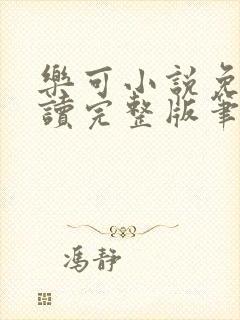 樂可小說免
讀完整版筆
馮靜